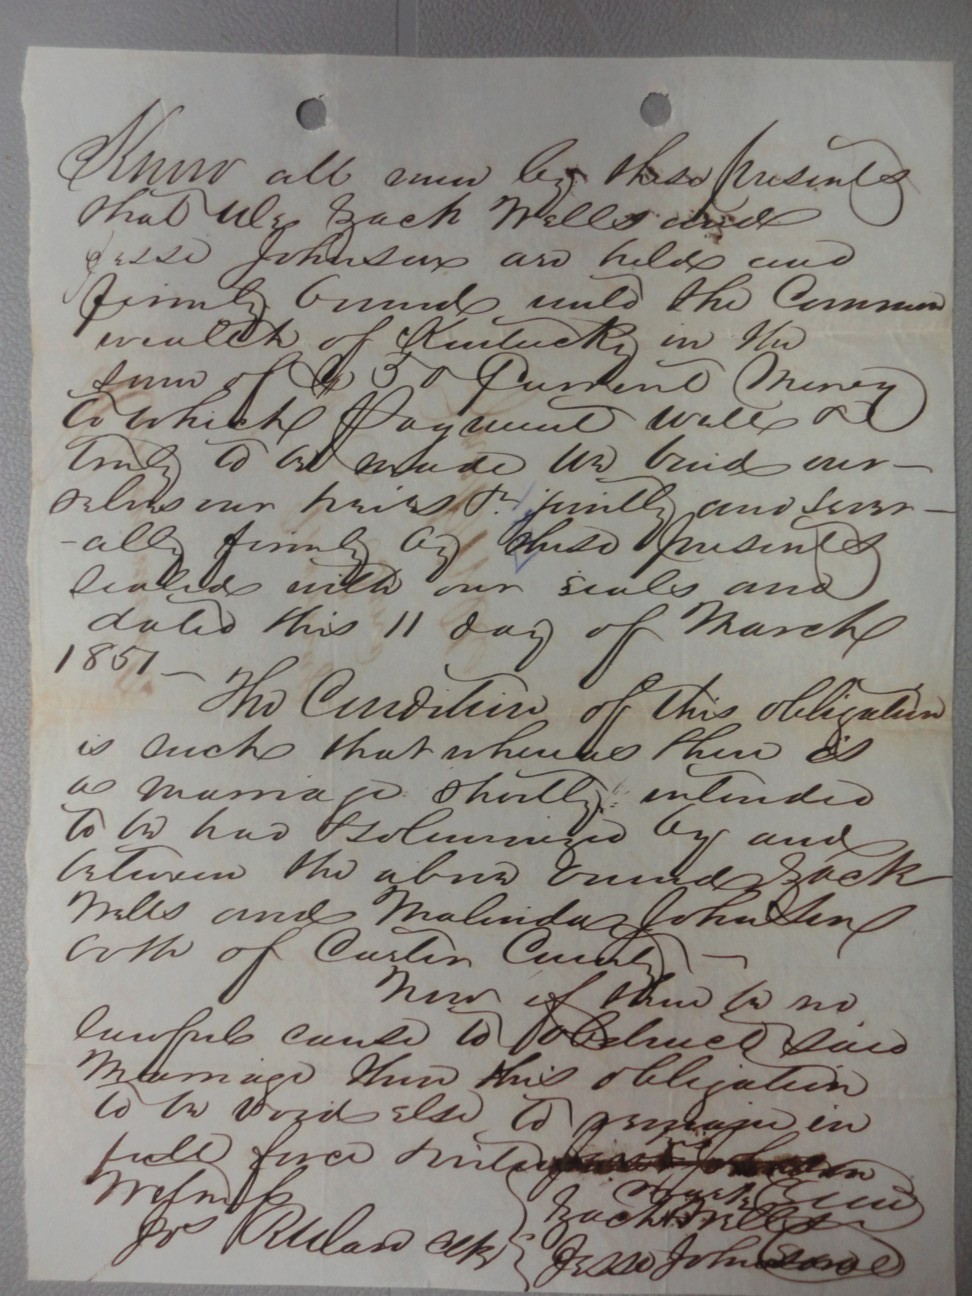 Know all men by these presents
that We Zack Wells and
Jesse Johnson are held and
firmly bound unto the Common
wealth of Kentucky in the
sum of $50 Current Money
to which Payment well &
truly to be made we bind our-
selves our heirs &c jointly and sever-
-ally firmly by these presents
sealed with our seals and
dated this 11 day of March
1851 -
The Condition of this obligation
is such that whereas there is
a marriage shortly intended
to be had & solemnized by and
between the above bound Zack
Wells and Malinda Johnson
both of Carter County -
Now if there be no
lawful cause to obstruct said
Marriage then this obligation
to be void else to remain in
full force & virtue
Witness
Zack Wells
Jos clk
Jesse Johnson